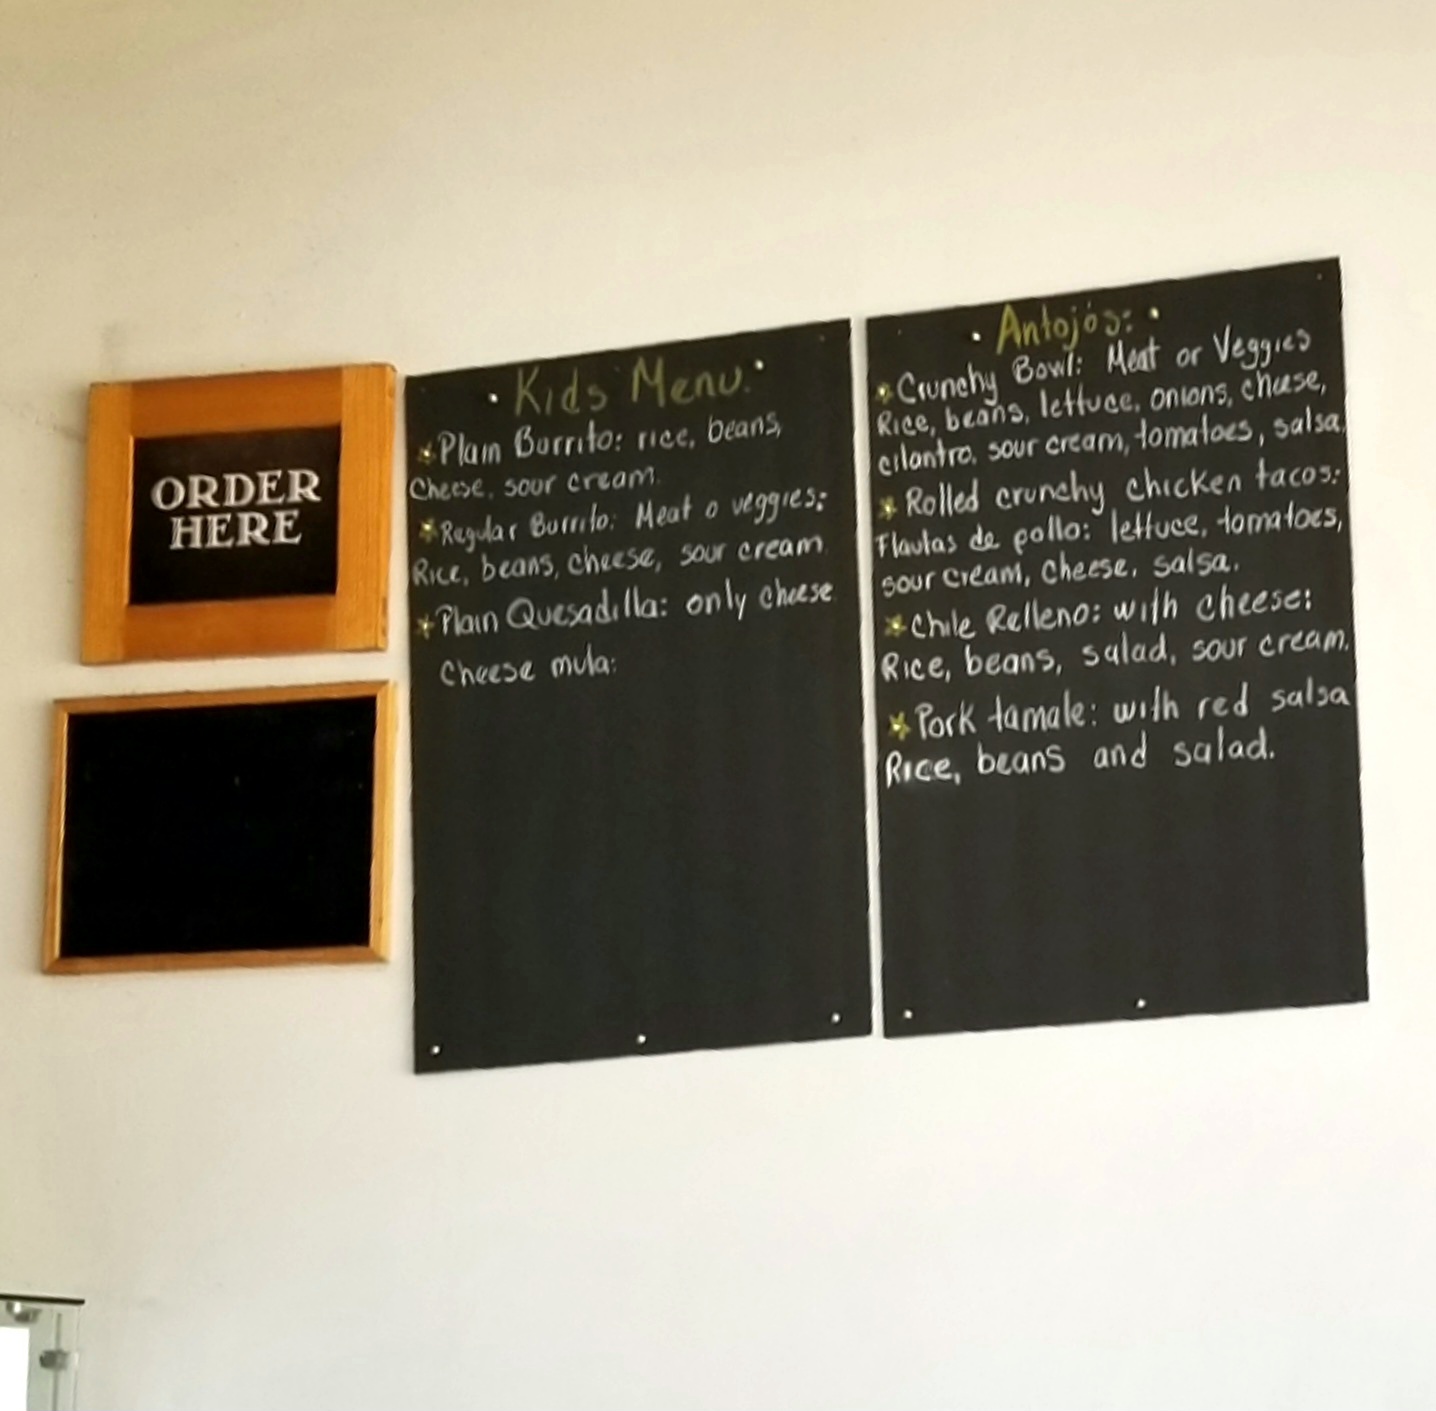 ORDER
HERE
Kids Menu.
Plain Burrito: rice, beans,
Cheese, sour cream.
Regular Burrito: Meat o veggies:
Rice, beans, cheese, sour cream
Plain Quesadilla: only cheese
Cheese mula:
Antojós:
Crunchy Bowl: Meat or Veggies
Rice, beans, lettuce, onions, cheese,
cilantro, sour cream, tomatoes, salsa.
Rolled crunchy chicken tacos:
Flautas de pollo: lettuce, tomatoes,
sour cream, cheese, salsa.
Chile Relleno: with cheese:
Rice, beans, salad, sour cream.
Pork tamale: with red salsa
Rice, beans and salad.